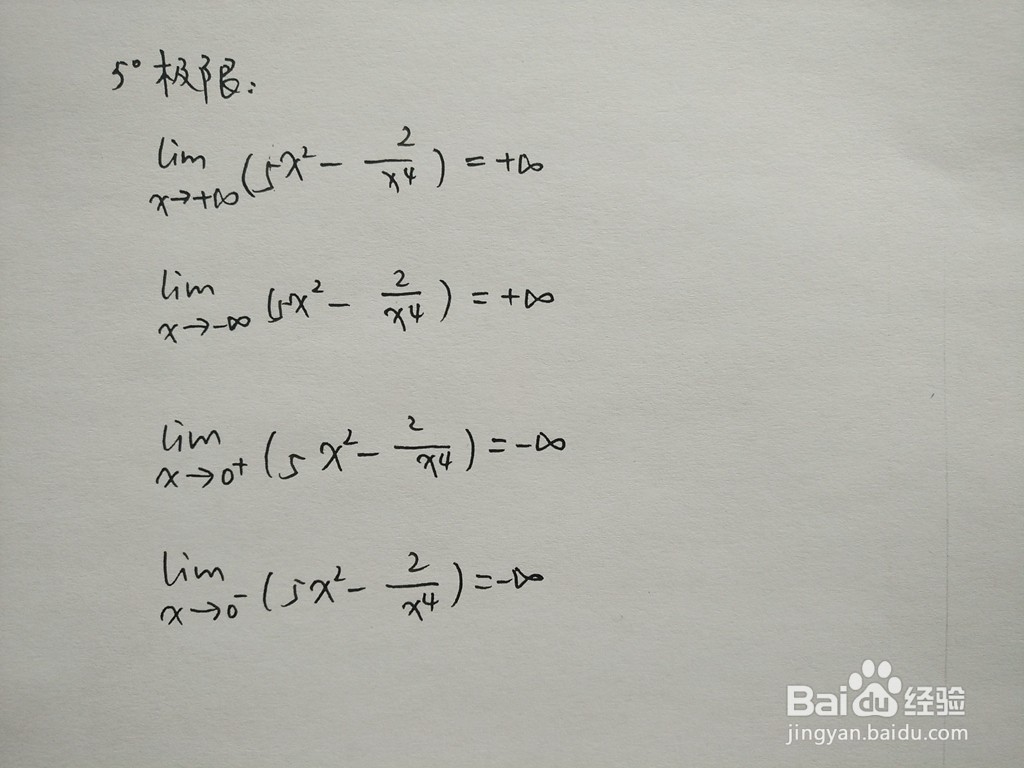 5° 极限:
lim x→+∞ (5x² - 2/x⁴) = +∞
lim x→-∞ (5x² - 2/x⁴) = +∞
lim x→0⁺ (5x² - 2/x⁴) = -∞
lim x→0⁻ (5x² - 2/x⁴) = -∞
Baidu 经验
jingyan.baidu.com